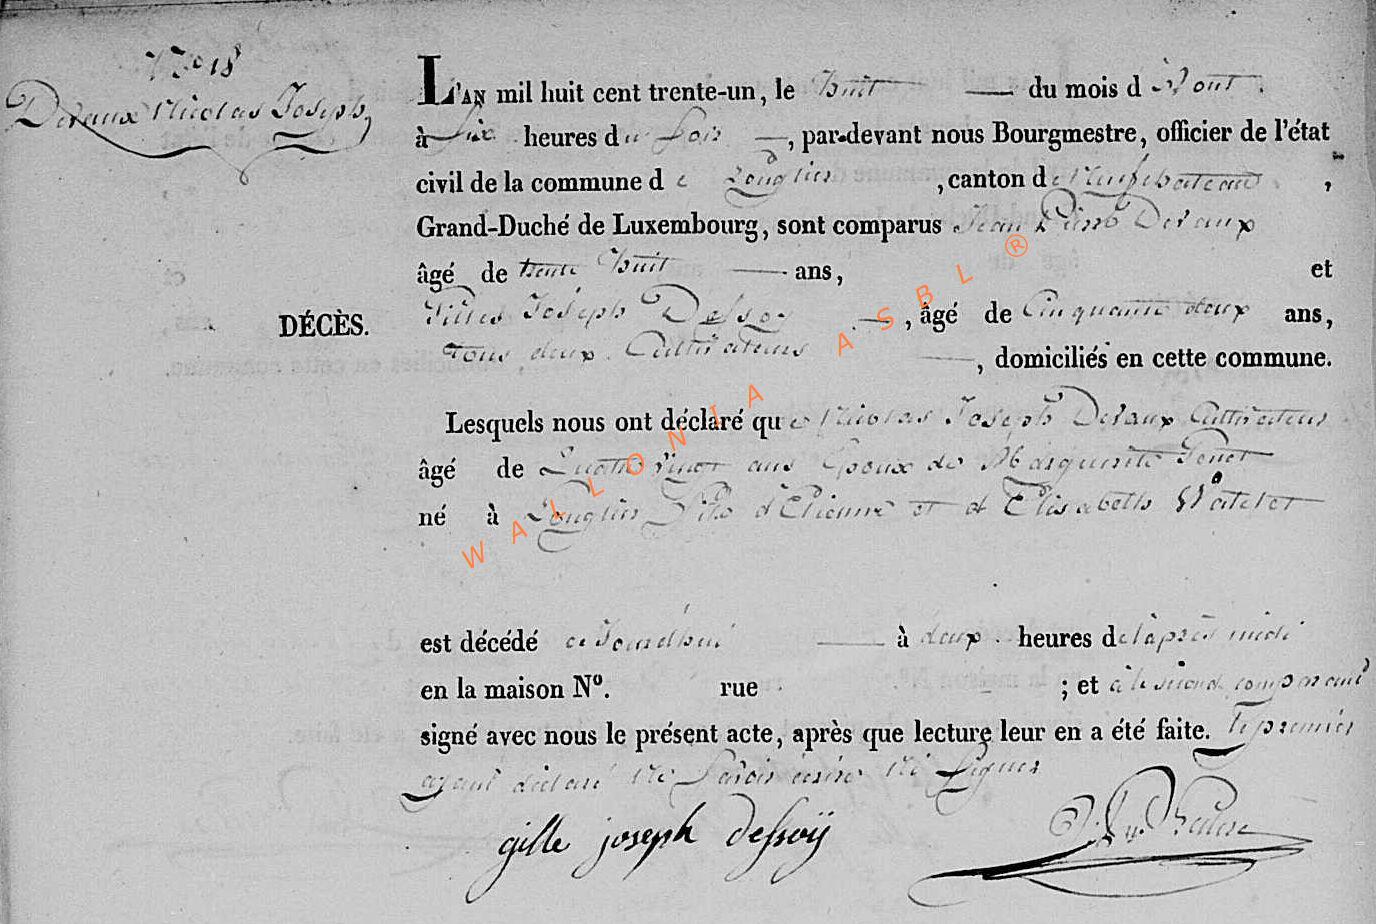 N.° 18
Devaux Nicolas Joseph
L'AN mil huit cent trente-un, le huit du mois d'Aout
à Six heures du Soir, par-devant nous Bourgmestre, officier de l'état
civil de la commune de Longlier, canton de Neufchateau,
Grand-Duché de Luxembourg, sont comparus Jean Pierre Devaux
âgé de trente huit ans, et
Joseph Dessoy, âgé de Cinquante deux ans,
DÉCÈS.
tous deux Cultivateurs, domiciliés en cette commune.
Lesquels nous ont déclaré que Nicolas Joseph Devaux Cultivateur
âgé de Quatre vingt ans Epoux de Marguerite
né à Longlier Fils d'Etienne et d'Elisabeth Watelet
est décédé ce Jourdhui à deux heures de l'après midi
en la maison N.° rue ; et a le second comparant
signé avec nous le présent acte, après que lecture leur en a été faite. le premier
ayant déclaré Ne Savoir écrire Ni Signer
gille joseph dessoÿ
WALLONIA ASBL ®